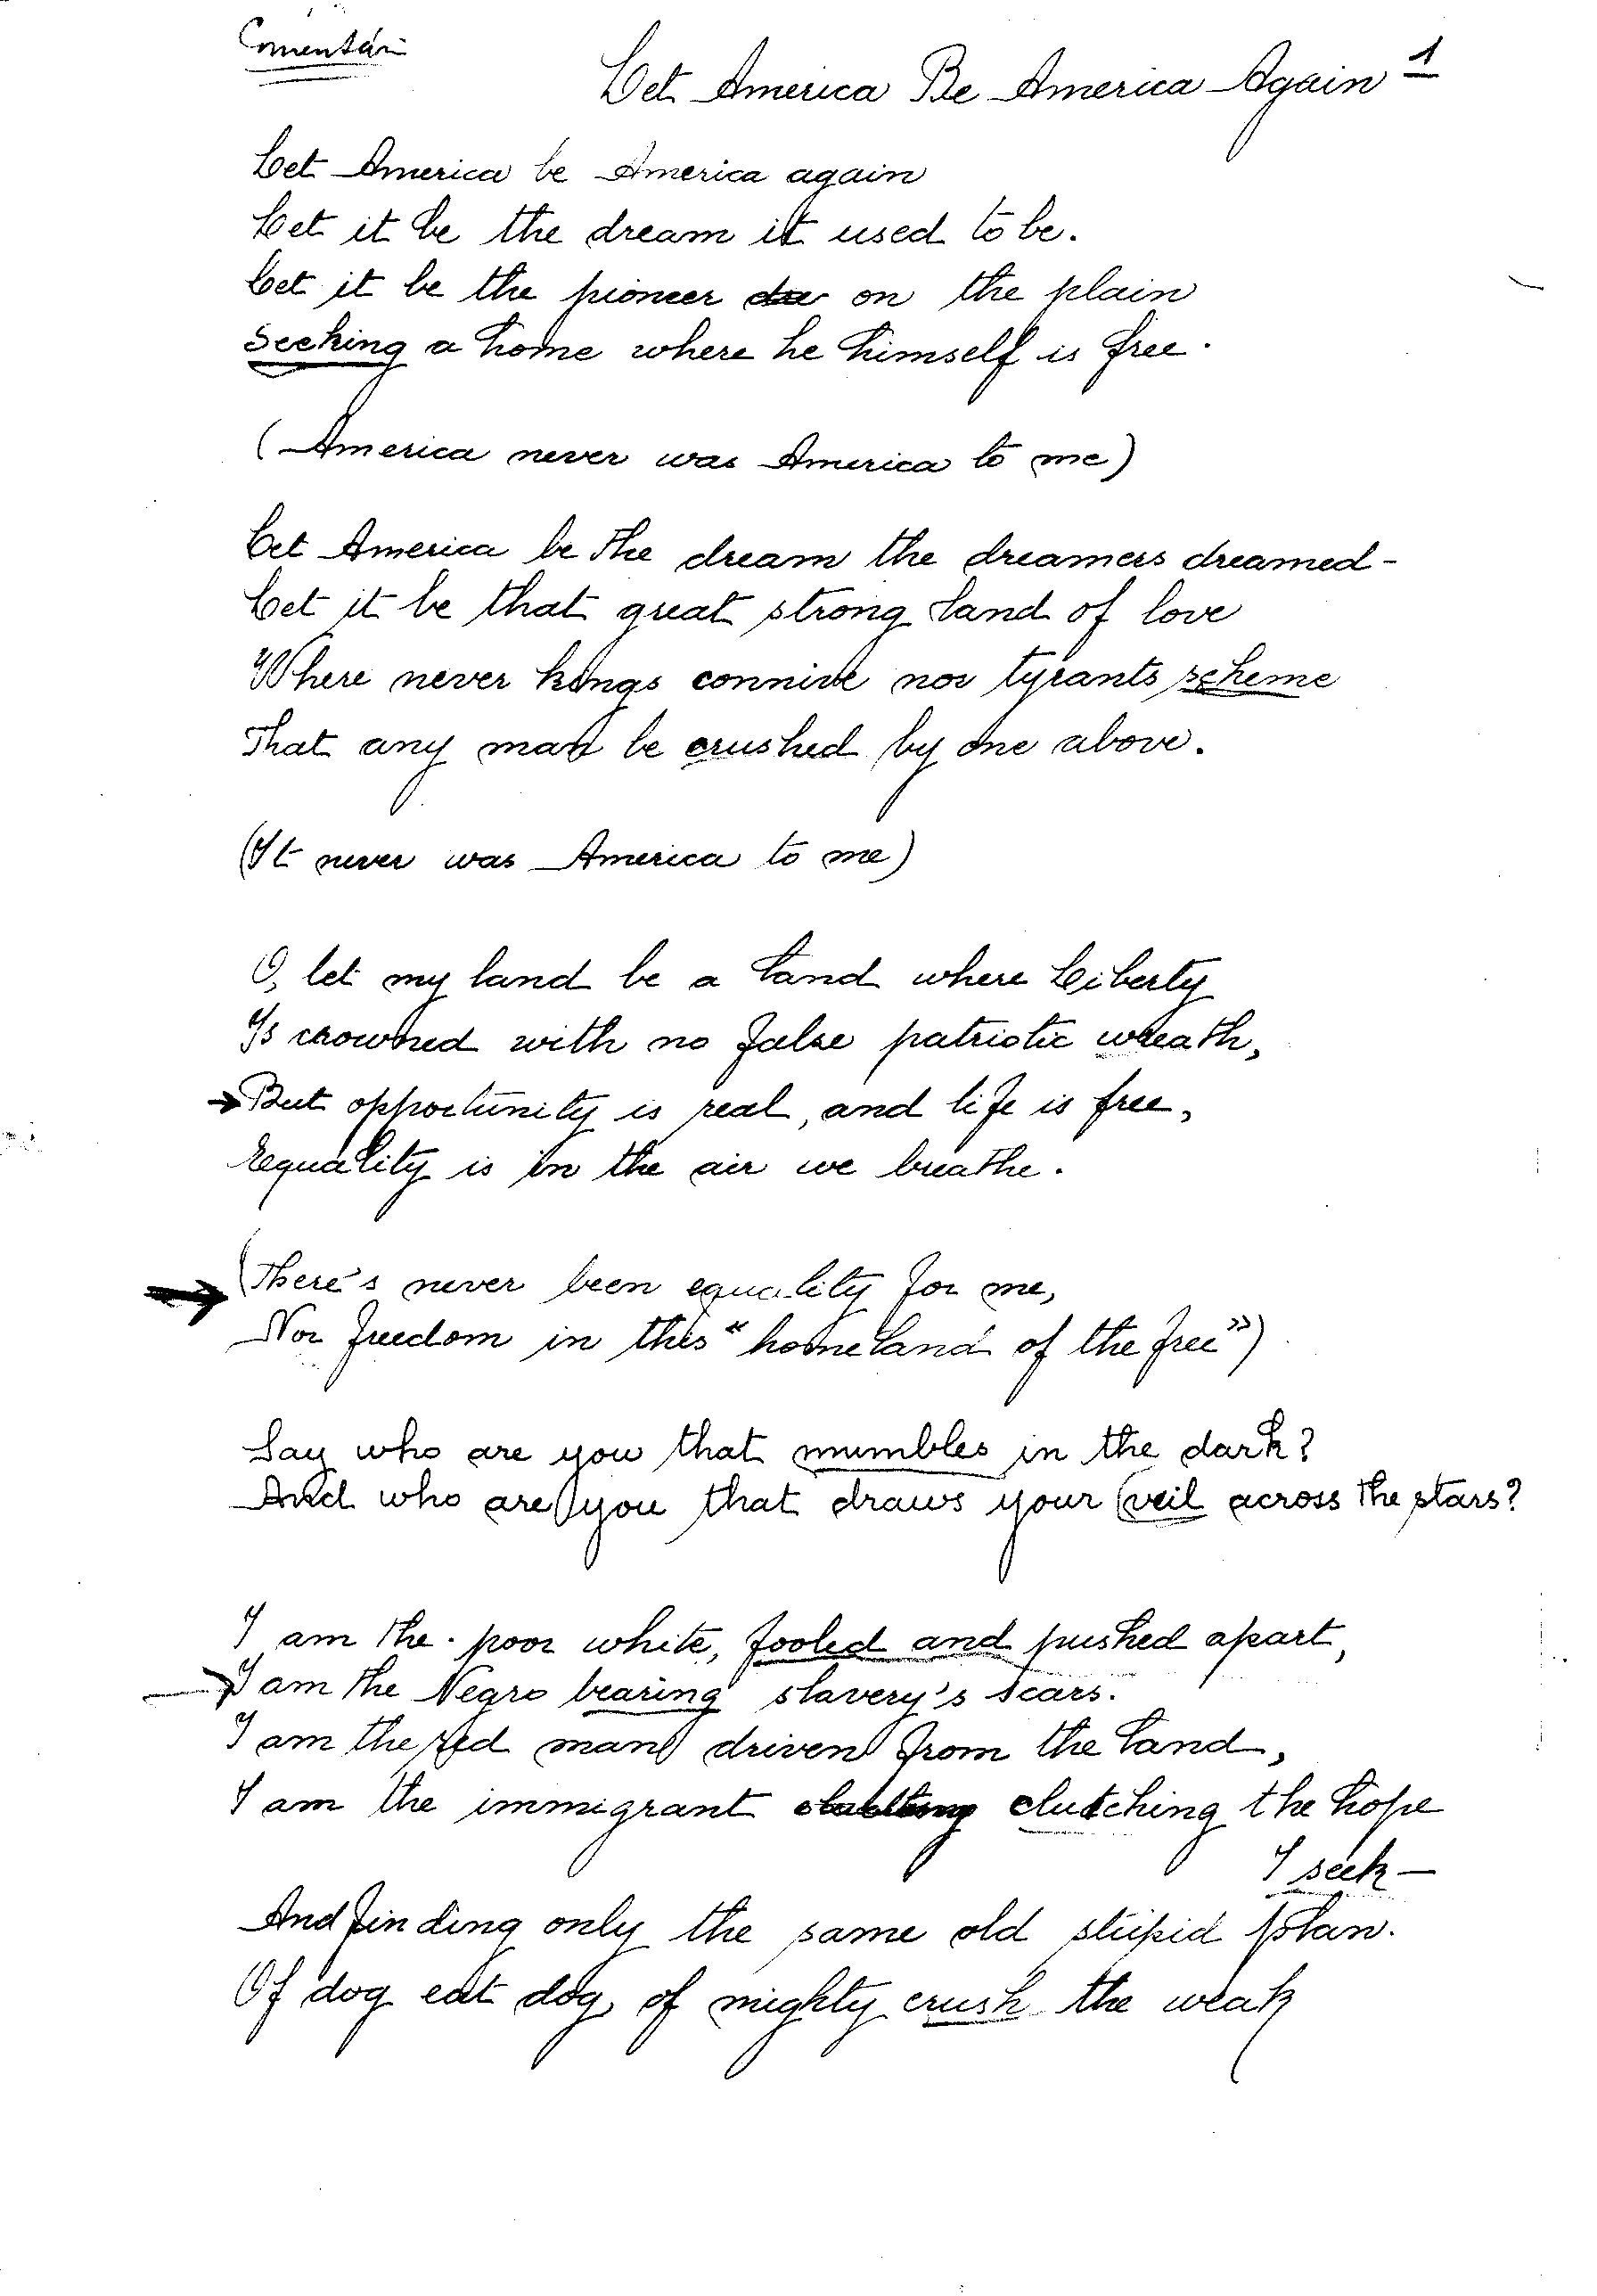 Comentari
Let America Be America Again 1
Let America be America again
Let it be the dream it used to be.
Let it be the pioneer on the plain
Seeking a home where he himself is free.
(America never was America to me)
Let America be the dream the dreamers dreamed-
Let it be that great strong land of love
Where never kings connive nor tyrants scheme
That any man be crushed by one above.
(It never was America to me)
O, let my land be a land where Liberty
Is crowned with no false patriotic wreath,
→But opportunity is real, and life is free,
Equality is in the air we breathe.
→ (There's never been equality for me,
Nor freedom in this "homeland of the free")
Say who are you that mumbles in the dark?
And who are you that draws your veil across the stars?
I am the poor white, fooled and pushed apart,
→ I am the Negro bearing slavery's scars.
I am the red man driven from the land,
I am the immigrant clutching the hope
I seek—
And finding only the same old stupid plan.
Of dog eat dog, of mighty crush the weak